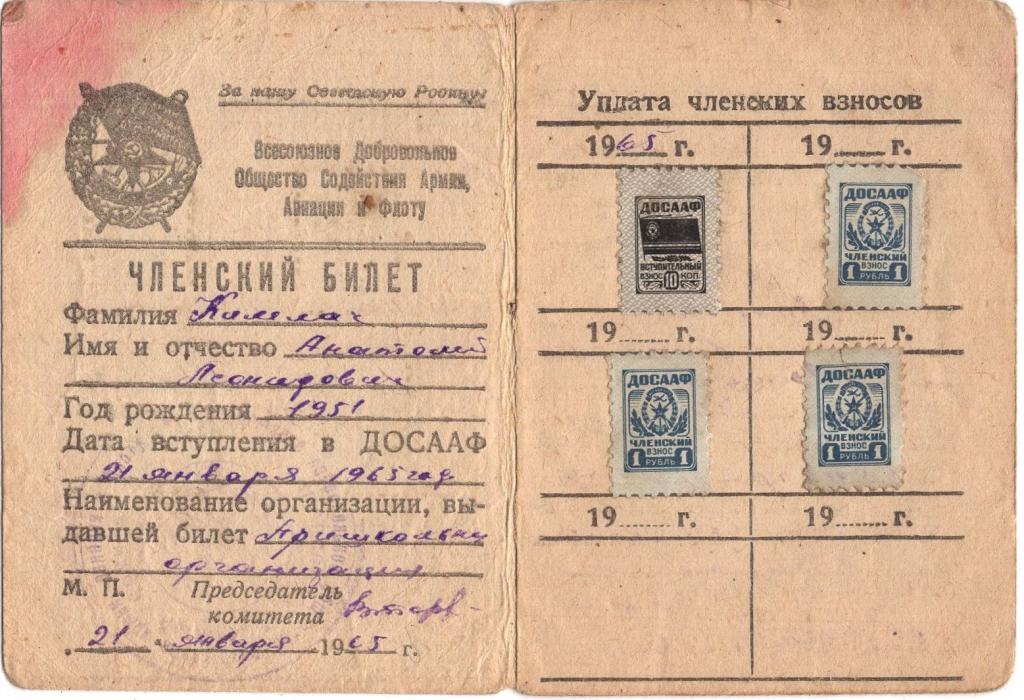 За нашу Советскую Родину!
Всесоюзное Добровольное
Общество Содействия Армии,
Авиации и Флоту
ЧЛЕНСКИЙ БИЛЕТ
Фамилия
Имя и отчество Анатолий
Леонидович
Год рождения 1951
Дата вступления в ДОСААФ
21 января 1965 год
Наименование организации, вы-
давшей билет Пришкольная
организация
М. П. Председатель
комитета
21 января 1965 г.
Уплата членских взносов
1965 г. 19 г.
ДОСААФ
ВСТУПИТЕЛЬНЫЙ
ВЗНОС 10 КОП.
ДОСААФ
ЧЛЕНСКИЙ
ВЗНОС
1 РУБЛЬ 1
19 г. 19 г.
ДОСААФ
ЧЛЕНСКИЙ
ВЗНОС
1 РУБЛЬ 1
ДОСААФ
ЧЛЕНСКИЙ
ВЗНОС
1 РУБЛЬ 1
19 г. 19 г.